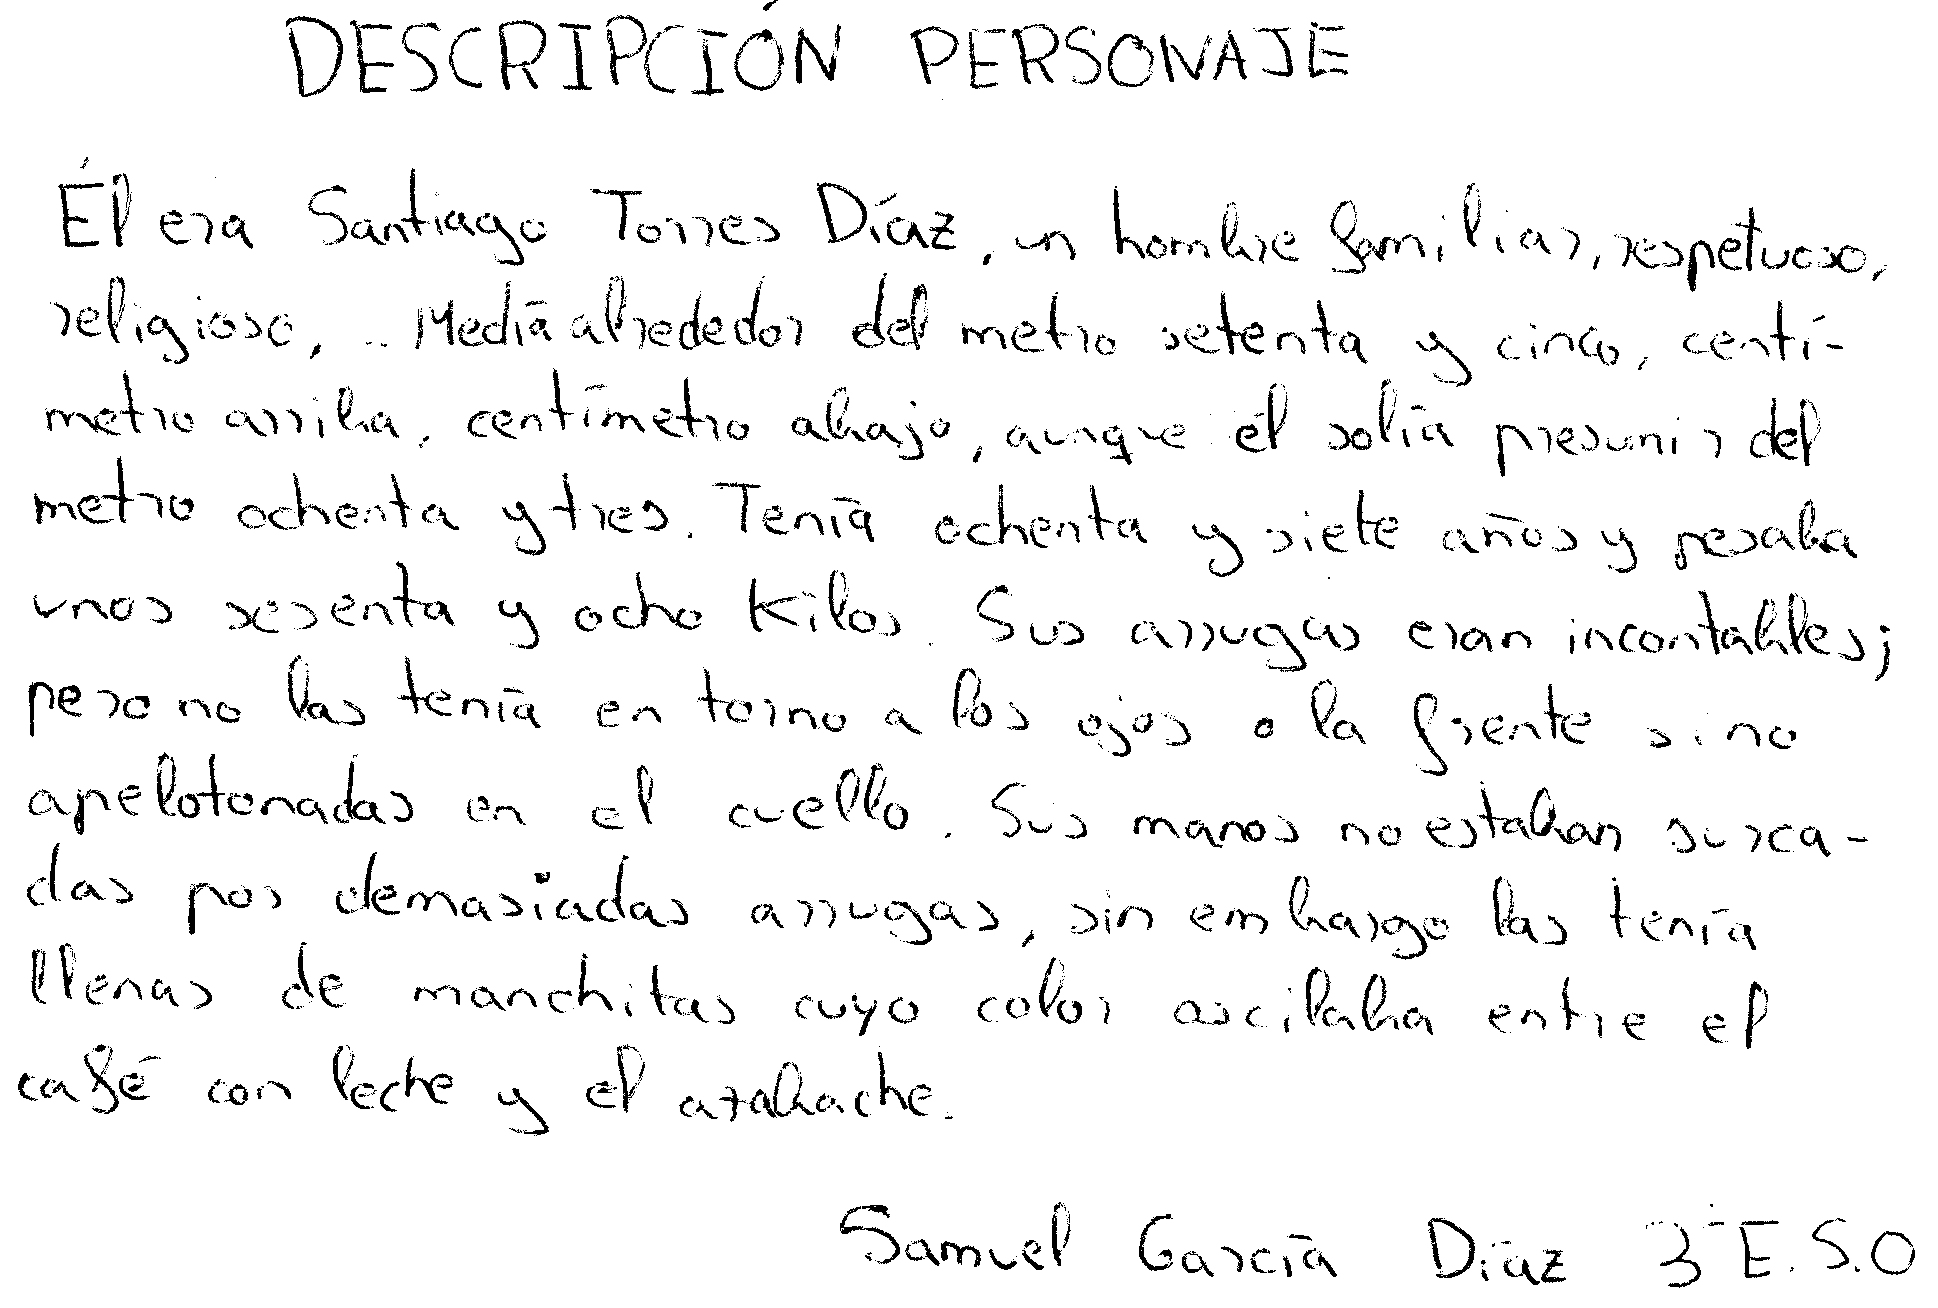 DESCRIPCIÓN PERSONAJE
Él era Santiago Torres Díaz, un hombre familiar, respetuoso,
religioso, ... Medía alrededor del metro setenta y cinco, centí-
metro arriba, centímetro abajo, aunque él solía presumir del
metro ochenta y tres. Tenía ochenta y siete años y pesaba
unos sesenta y ocho kilos. Sus arrugas eran incontables;
pero no las tenía en torno a los ojos o la frente sino
apelotonadas en el cuello. Sus manos no estaban surca-
das por demasiadas arrugas, sin embargo las tenía
llenas de manchitas cuyo color oscilaba entre el
café con leche y el azabache.
Samuel García Díaz 3º E.S.O